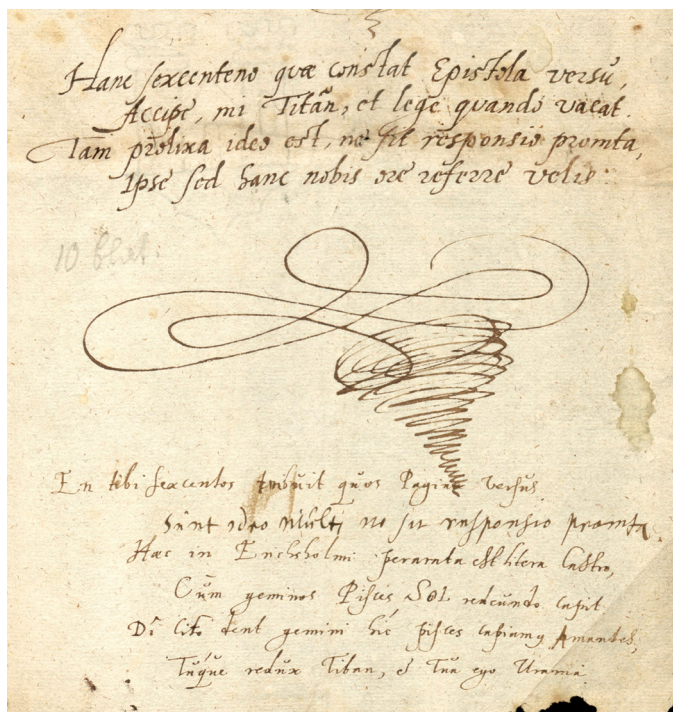 Hanc sexcenteno quæ constat Epistola versu,
Accipe, mi Titãn, et lege quando vacat.
Tam prolixa ideo est, ne sit responsio promta,
Ipse sed hanc nobis ore referre velis.
10 Blat.
En tibi sexcentos tribuit quos Pagina versus
Sunt ideo multi ne sit responsio promta.
Hæc in Enchsholmi perarata est litera Castro,
Cum geminos Pisces Sol redeundo capit
Di cito dent gemini hic pisces capiamq Amantes,
Tuque redux Titan, & Tua ego Urania.